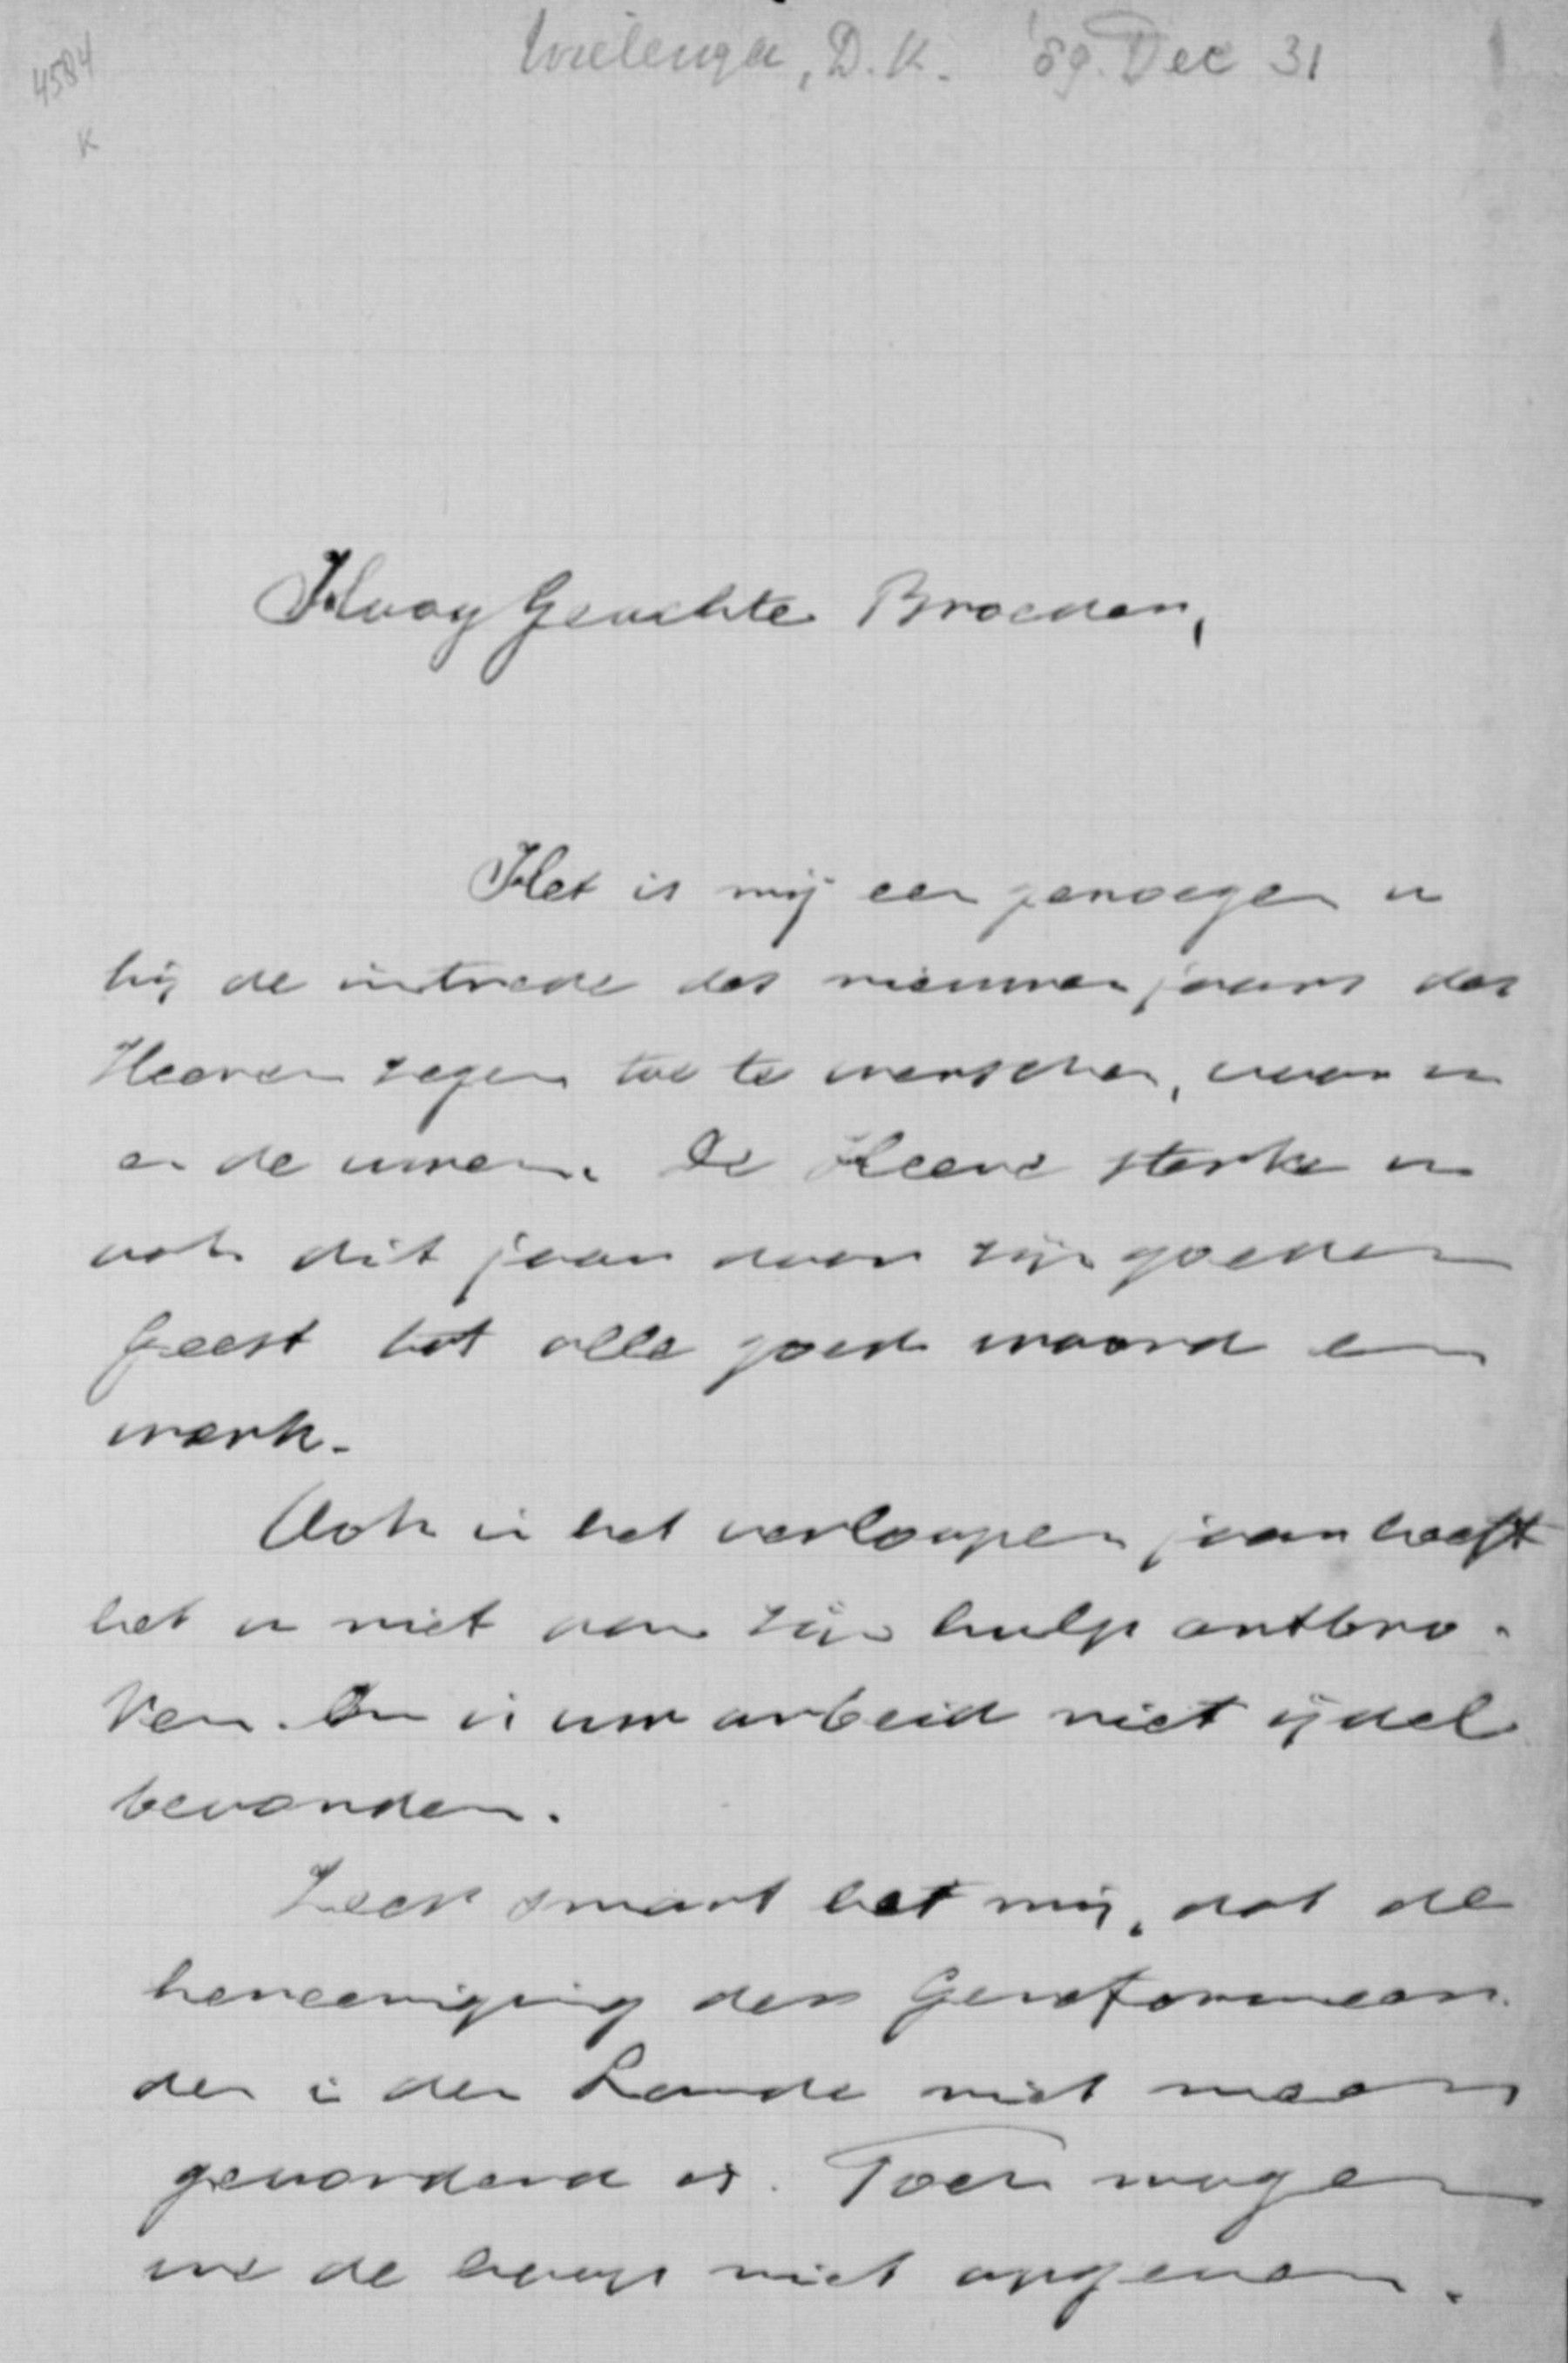 4584
K
Wielenga, D.K. '89. Dec 31
Hoog Geachte Broeder,
Het is mij een genoegen u
bij de intrede des nieuwen jaars des
Heeren zegen toe te wenschen, voor u
en de uwen. De Heere sterke u
ook dit jaar door zijn goeden
Geest tot alle goed woord en
werk.
Ook in het verloopen jaar heeft
het u niet aan zijn hulp ontbro-
ken. En is uw arbeid niet ijdel
bevonden.
Zeer smart het mij, dat de
hereeniging der Gereformeer-
den in den Lande niet meer
gevorderd is. Toch mogen
we de hoop niet opgeven.